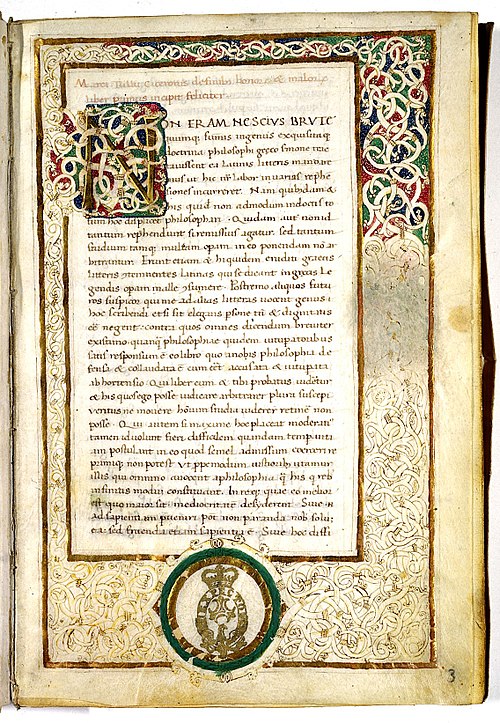 Marci Tullii Ciceronis de finib; bonor & malor
liber primus incipit feliciter
NON ERAM NESCIVS BRVTE
quumq; sumis ingeniis exquisitaq;
doctrina philosophi greco smone tracta
uissent ea latinis litteris mandarem
mus ut hic nr labor in uarias rephen
siones incurreret. Nam quibusdam &
his quid non admodum indoctis to
tum hoc displicet philosophari. Quidam aut non id
tantum rephendunt si remissius agatur. sed tantum
studium tamq; multam opam in eo ponendam no ar
bitrantur. Erunt etiam & hi quidem eruditi graecis
litteris contemnentes latinas qui se dicant in grecis le
gendis opam malle consumere. Postremo aliquos futu
ros suspicor qui me ad alias litteras uocent genus
hoc scribendi etsi sit elegans psone tn & dignitatis
ee negent. contra quos omnes dicendum breuiter
existimo quanq philosophiae quidem uituperatoribus
satis responsum e eo libro quo a nobis philosophia de
fensa & collaudata e cum eet accusata & uituperata
ab hortensio. Qui liber cum & tibi probatus uideretur
& his quos ego posse iudicare arbitrarer plura suscepi
ueritus ne mouere hominum studia uiderer retinere non
posse. Qui autem si maxime hoc placeat moderatius
tamen id uolunt fieri. difficilem quandam tempantia
am postulant in eo quod semel admissum coerceri re
primiq; non potest. Ut ppemodum iustioribus utamur
illis qui omnino auocent a philosophia q his q reb
infinitis modum constituant. In req; quae eo melior
est quo maior sit mediocritate desyderent. Siue
ad sapientiam pueniri pot non paranda nob solu
ea sed fruenda etiam sapientia e. Siue hoc diffi
3